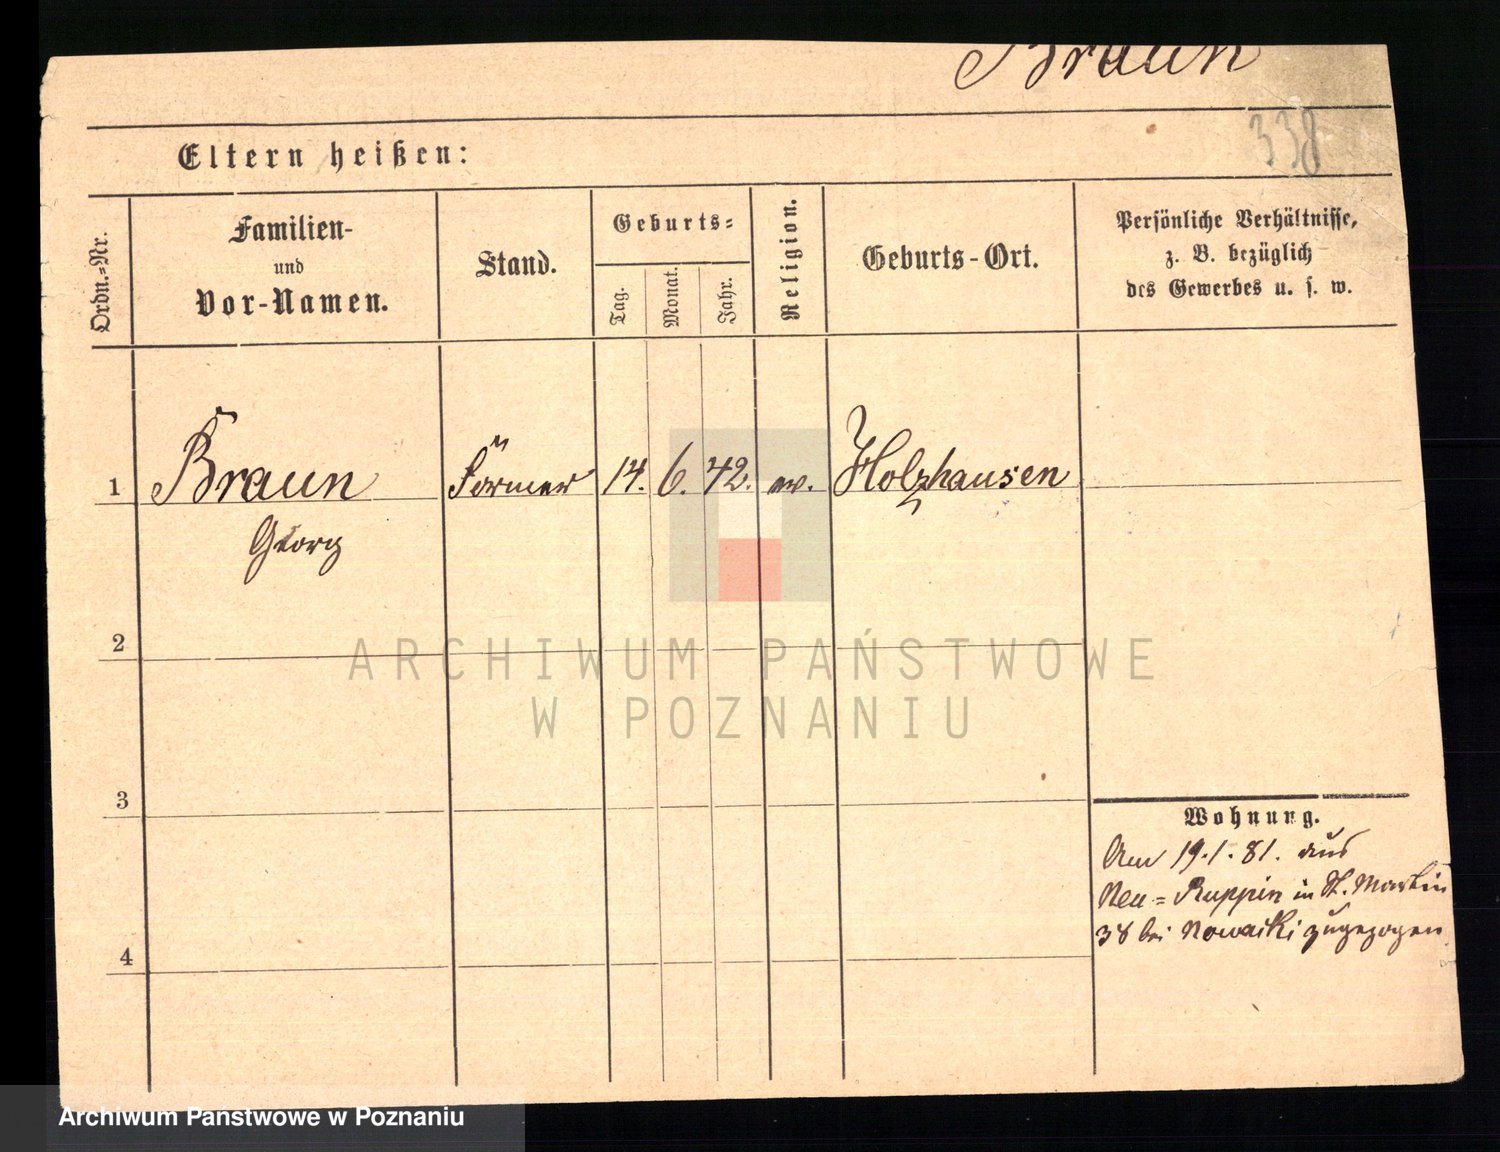 Braun
338
Eltern heißen:
Ordn.=Nr.
Familien-
und
Vor-Namen.
Stand.
Geburts=
Tag.
Monat.
Jahr.
Religion.
Geburts-Ort.
Persönliche Verhältnisse,
z. B. bezüglich
des Gewerbes u. s. w.
1 Braun Former 14. 6. 42. ev. Holzhausen
Georg
2
ARCHIWUM PAŃSTWOWE
W POZNANIU
3
Wohnung.
Am 19.1.81. aus
Neu=Ruppin in St. Martin
38 bei Nowaiki zugezogen
4
Archiwum Państwowe w Poznaniu